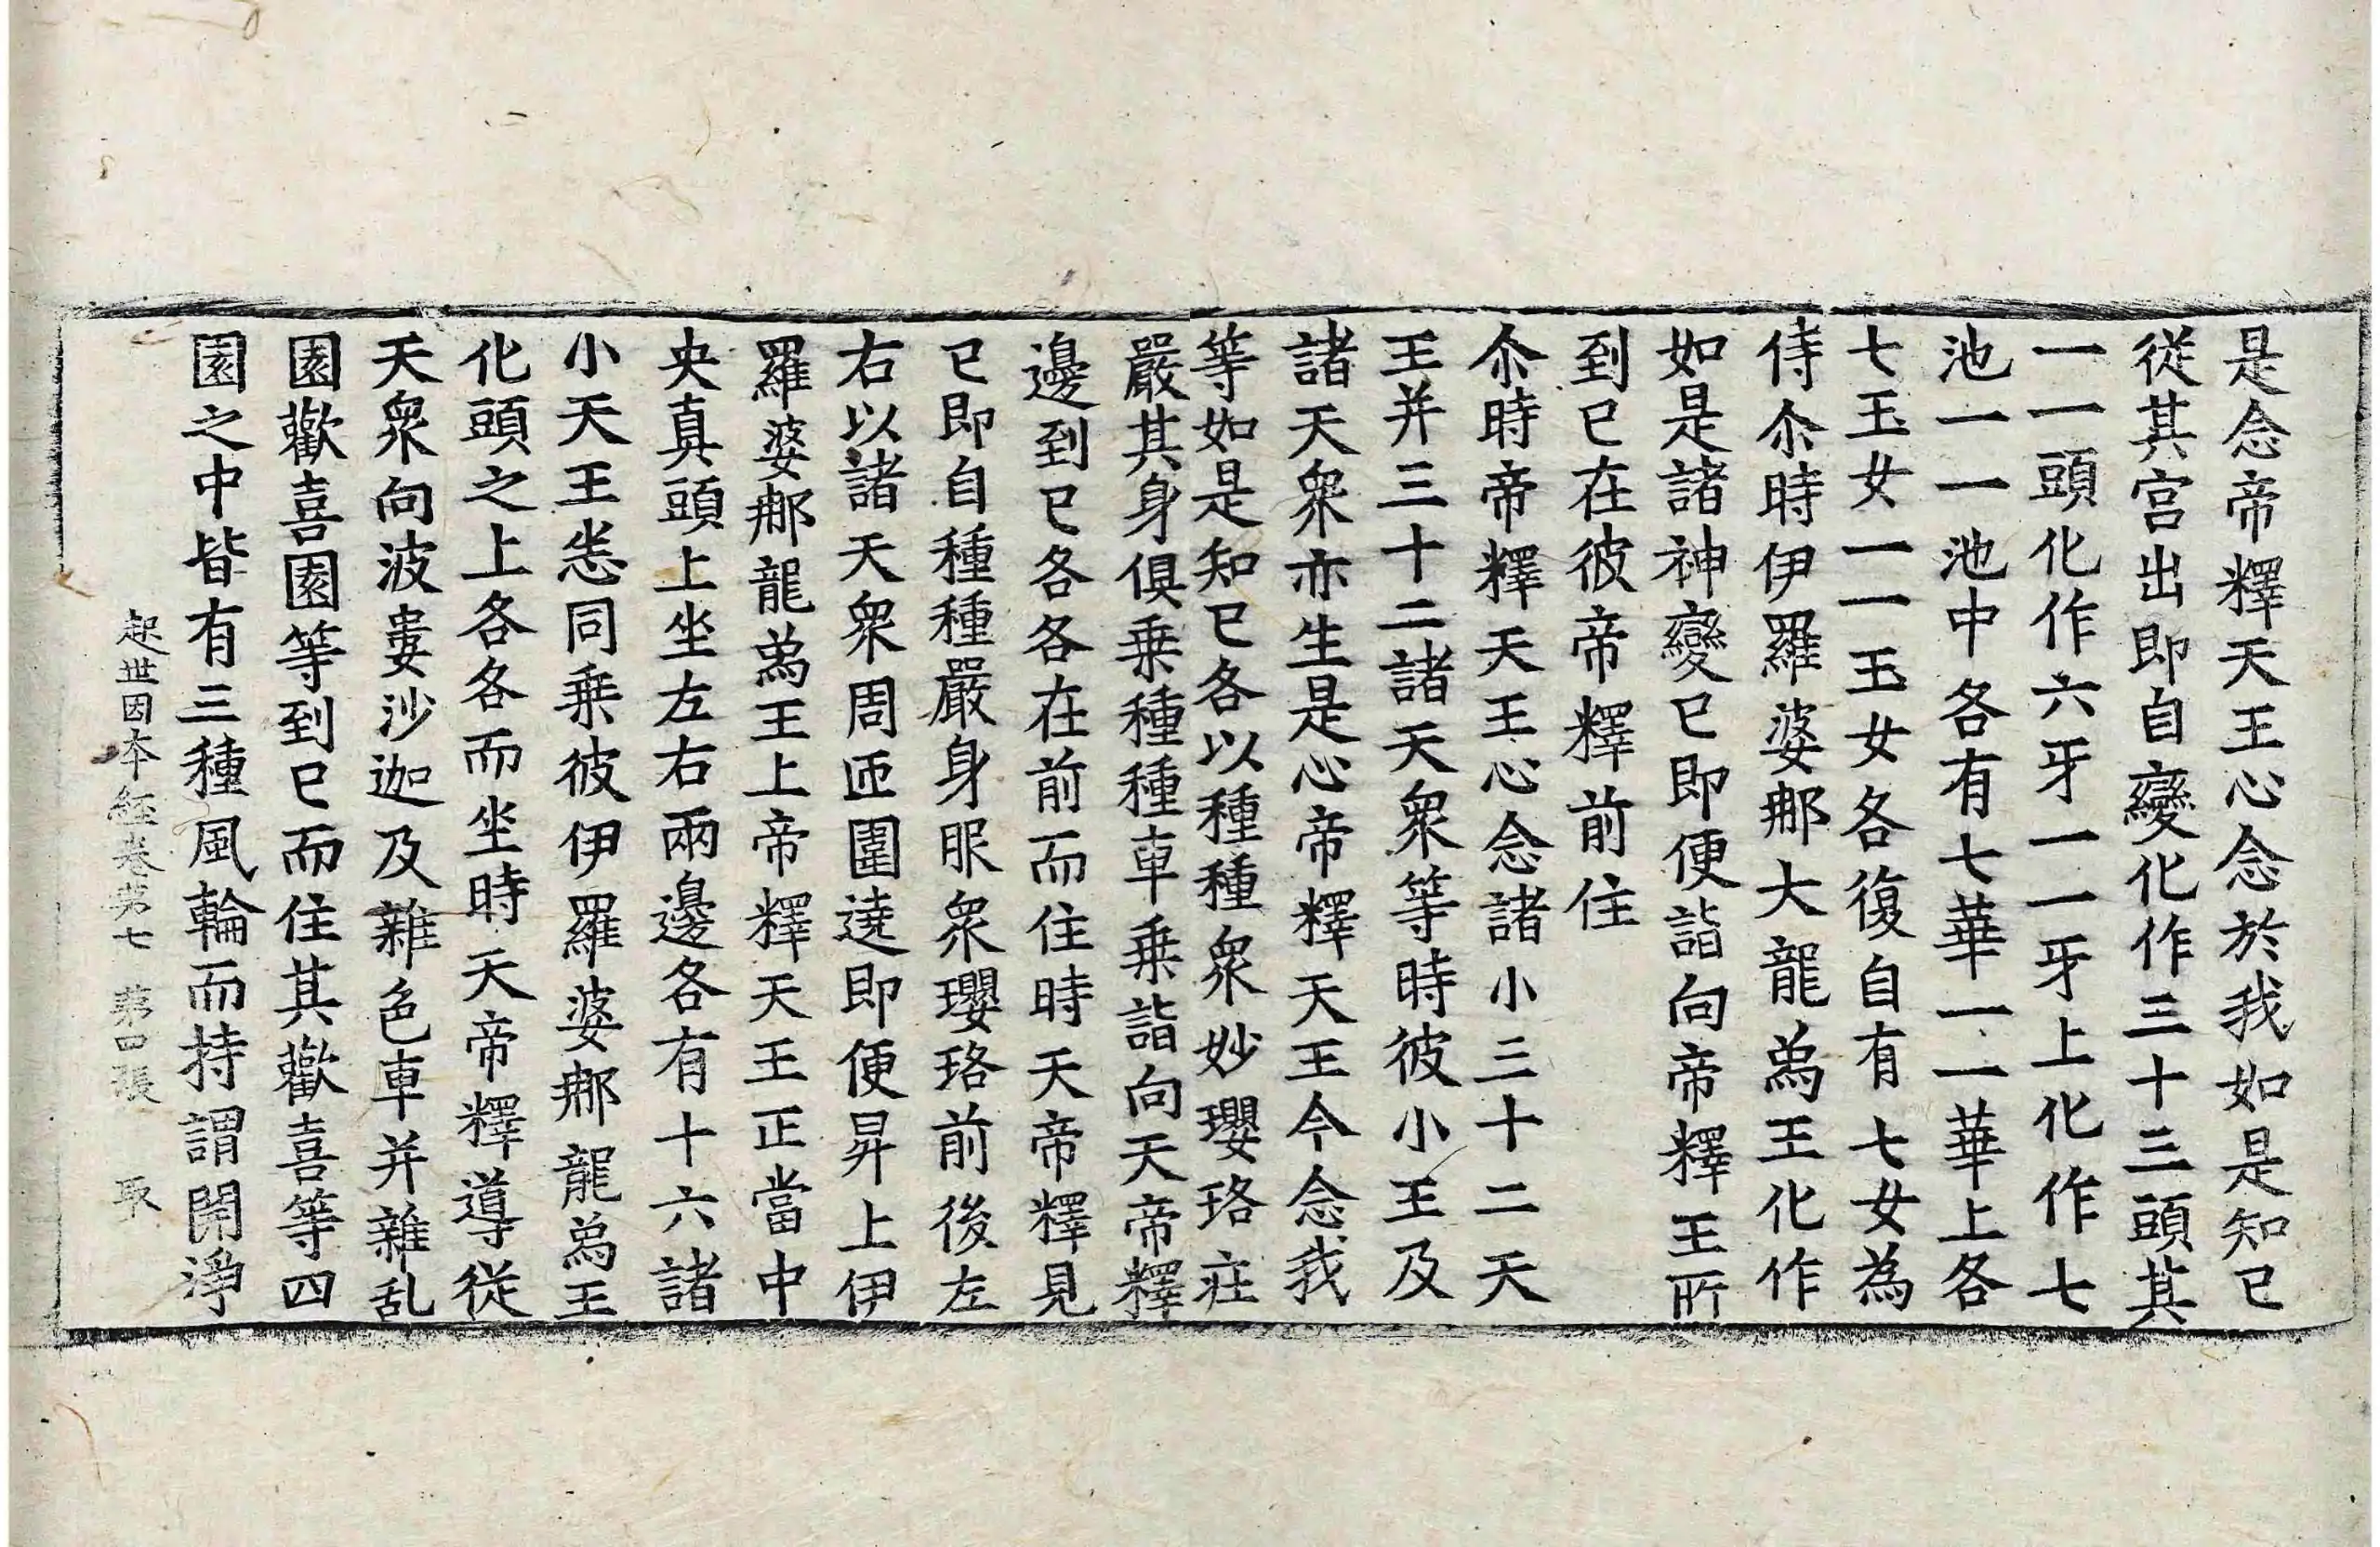 是念帝釋天王心念於我如是知已
從其宮出即自變化作三十三頭其
一一頭化作六牙一一牙上化作七
池一一池中各有七華一一華上各
七玉女一一玉女各復自有七女為
侍尒時伊羅婆那大龍爲王化作
如是諸神變已即便詣向帝釋王所
到已在彼帝釋前住
尒時帝釋天王心念諸小三十二天
王并三十二諸天衆等時彼小王及
諸天衆亦生是心帝釋天王今念我
等如是知已各以種種衆妙瓔珞莊
嚴其身俱乗種種車乗詣向天帝釋
邊到已各各在前而住時天帝釋見
已即自種種嚴身服衆瓔珞前後左
右以諸天衆周匝圍遶即便昇上伊
羅婆那龍爲王上帝釋天王正當中
央真頭上坐左右兩邊各有十六諸
小天王悉同乗彼伊羅婆那龍爲王
化頭之上各各而坐時天帝釋導從
天衆向波婁沙迦及雜色車并雜乱
園歡喜園等到已而住其歡喜等四
園之中皆有三種風輪而持謂開淨
起世因本經卷第七 第四張 取